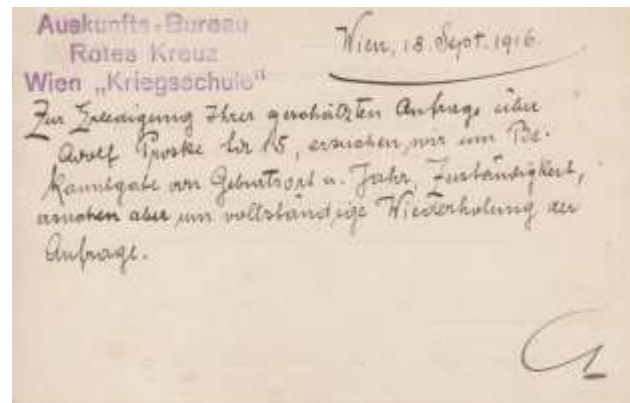 Auskunfts-Bureau
Rotes Kreuz
Wien „Kriegsschule"
Wien, 18. Sept. 1916.
Zur Erledigung Ihrer geschätzten Anfrage über
Adolf Proske 15, ersuchen wir um Be-
kanntgabe von Geburtsort u. Jahr, Zuständigkeit,
ersuchen aber um vollständige Wiederholung der
Anfrage.